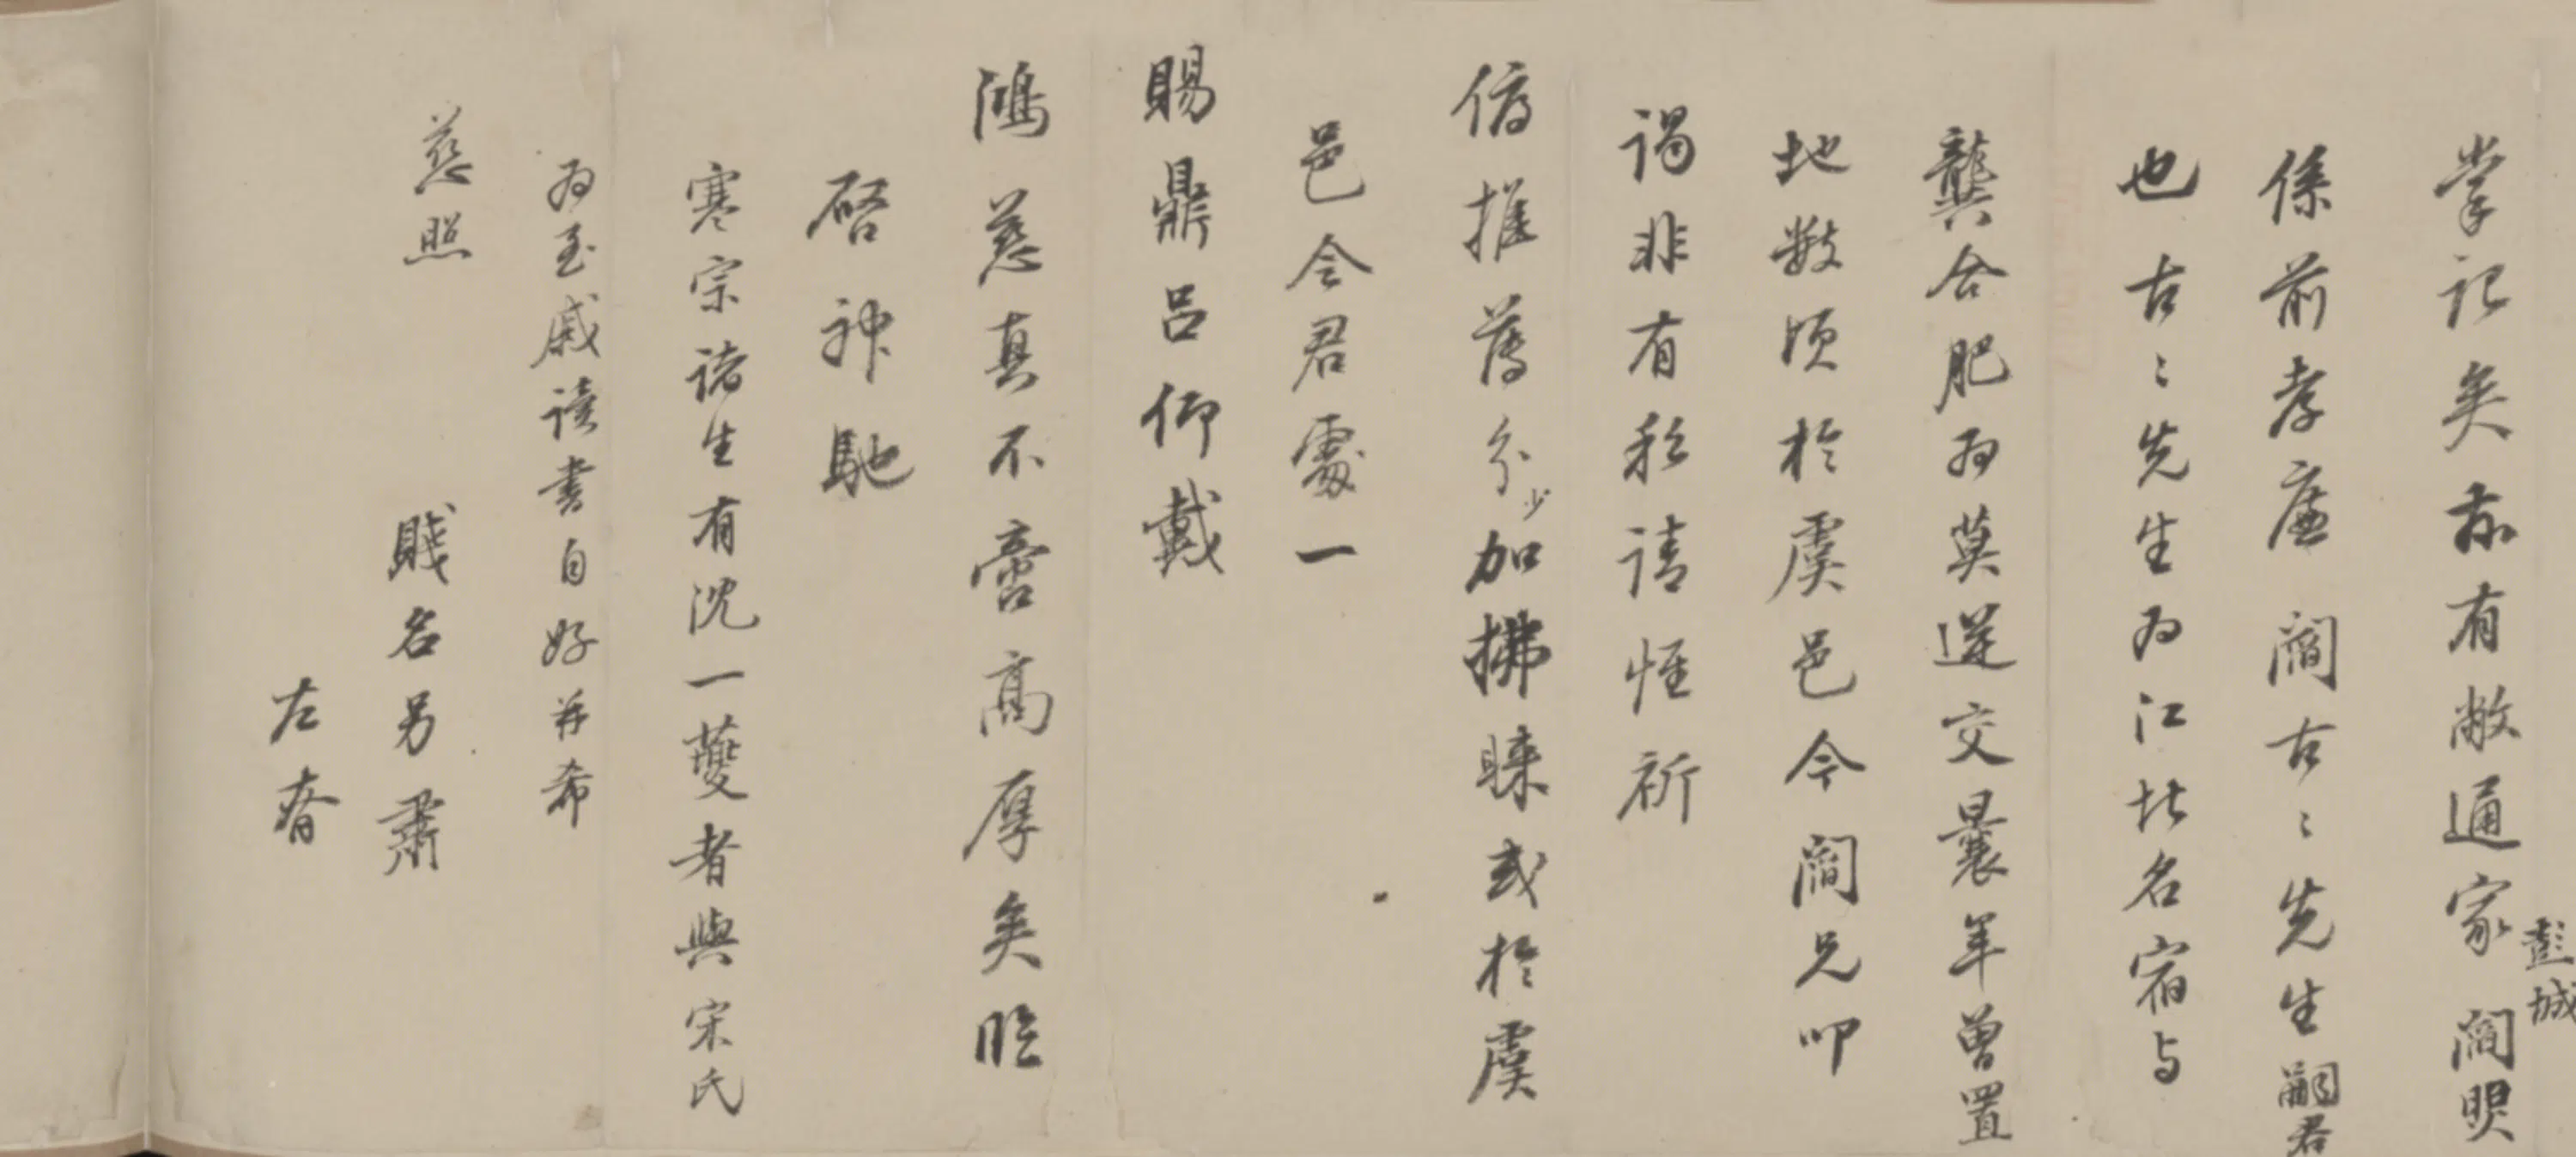 掌記矣亦有敝通家彭城閻貺
係前孝廉閻古〻先生嗣君
也古〻先生为江北名宿与
龔合肥为莫逆交曩年曾置
地数頃於虞邑今閻兄叩
謁非有私請惟祈
俯推舊分少加拂睞或於虞
邑令君處一
賜鼎呂仰戴
鴻慈真不啻高厚矣臨
啓神馳
寒宗諸生有沈一夔者與宋氏
为至戚读書自好并希
慈照
賤名另肅
左春